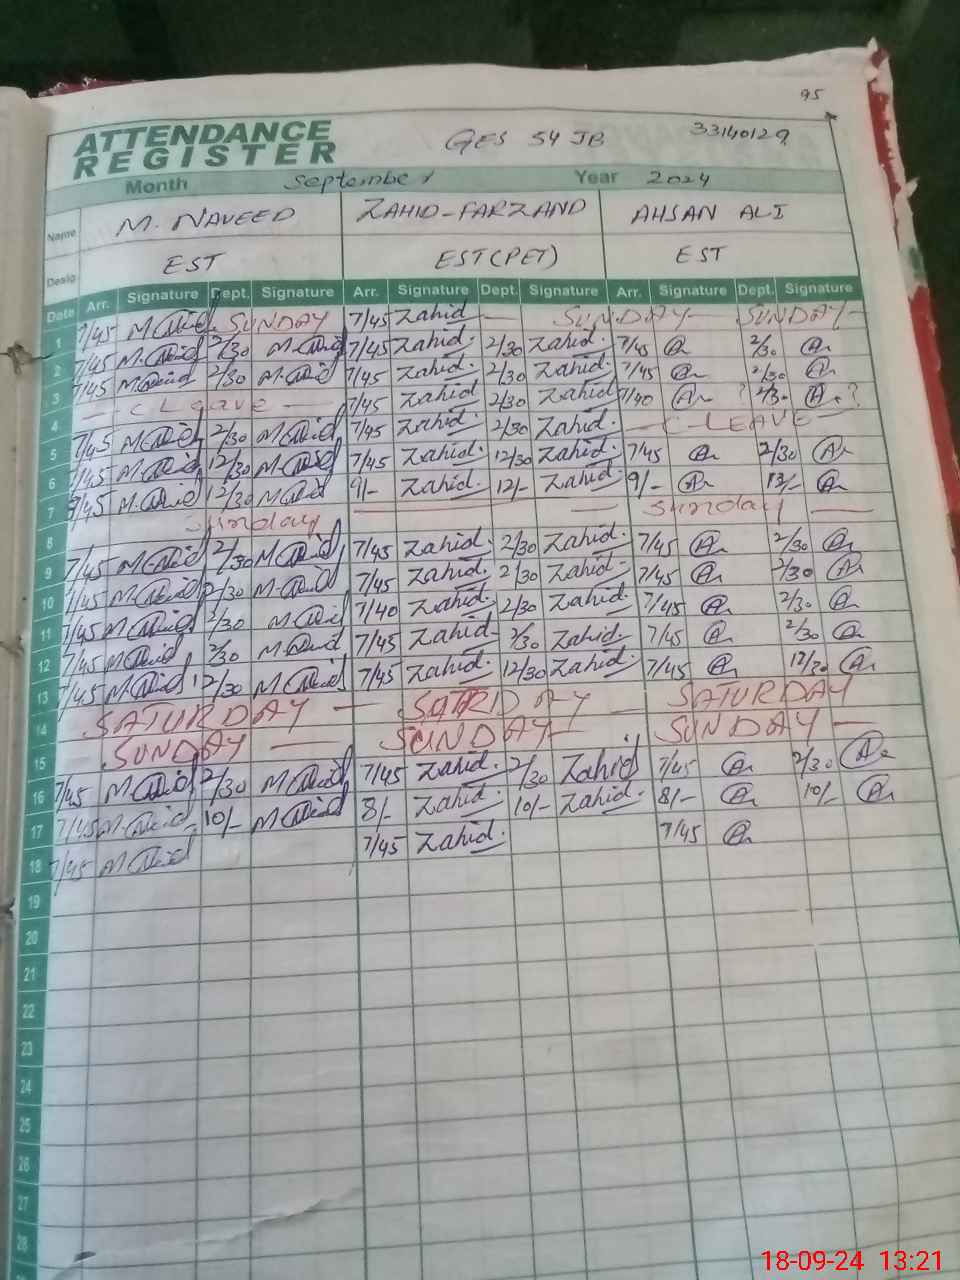 95
ATTENDANCE REGISTER GES 54 JB 33140129
Month September Year 2024
Name M. NAVEED ZAHID-FARZAND AHSAN ALI
Desig EST EST(PET) EST
Date Arr. Signature Dept. Signature Arr. Signature Dept. Signature Arr. Signature Dept. Signature
1 7/45 SUNDAY 7/45 Zahid — SUNDAY — SUNDAY —
2 7/45 2/30 7/45 Zahid. 2/30 Zahid. 7/45 2/30
3 7/45 2/30 7/45 Zahid 2/30 Zahid. 7/45 2/30
4 — C L eave — 7/45 Zahid 2/30 Zahid 7/40 ? 2/30 ?
5 7/45 2/30 7/45 Zahid 2/30 Zahid. — C-LEAVE —
6 7/45 12/30 7/45 Zahid. 12/30 Zahid. 7/45 2/30
7 7/45 12/30 9/- Zahid. 12/- Zahid. 9/-
8 Sunday — Sunday —
9 7/45 2/30 7/45 Zahid. 2/30 Zahid. 7/45 2/30
10 7/45 2/30 7/45 Zahid. 2/30 Zahid. 7/45 2/30
11 7/45 2/30 7/40 Zahid. 2/30 Zahid. 7/45 2/30
12 7/45 2/30 7/45 Zahid- 2/30 Zahid. 7/45 2/30
13 7/45 12/30 7/45 Zahid. 12/30 Zahid. 7/45 12/30
14 SATURDAY — SATRDAY — SATURDAY
15 SUNDAY — SUNDAY — SUNDAY —
16 7/45 2/30 7/45 Zahid. 2/30 Zahid 7/45 2/30
17 7/45 10/- 8/- Zahid. 10/- Zahid. 8/- 10/-
18 7/45 7/45 Zahid. 7/45
19
20
21
22
23
24
25
26
27
28
18-09-24 13:21